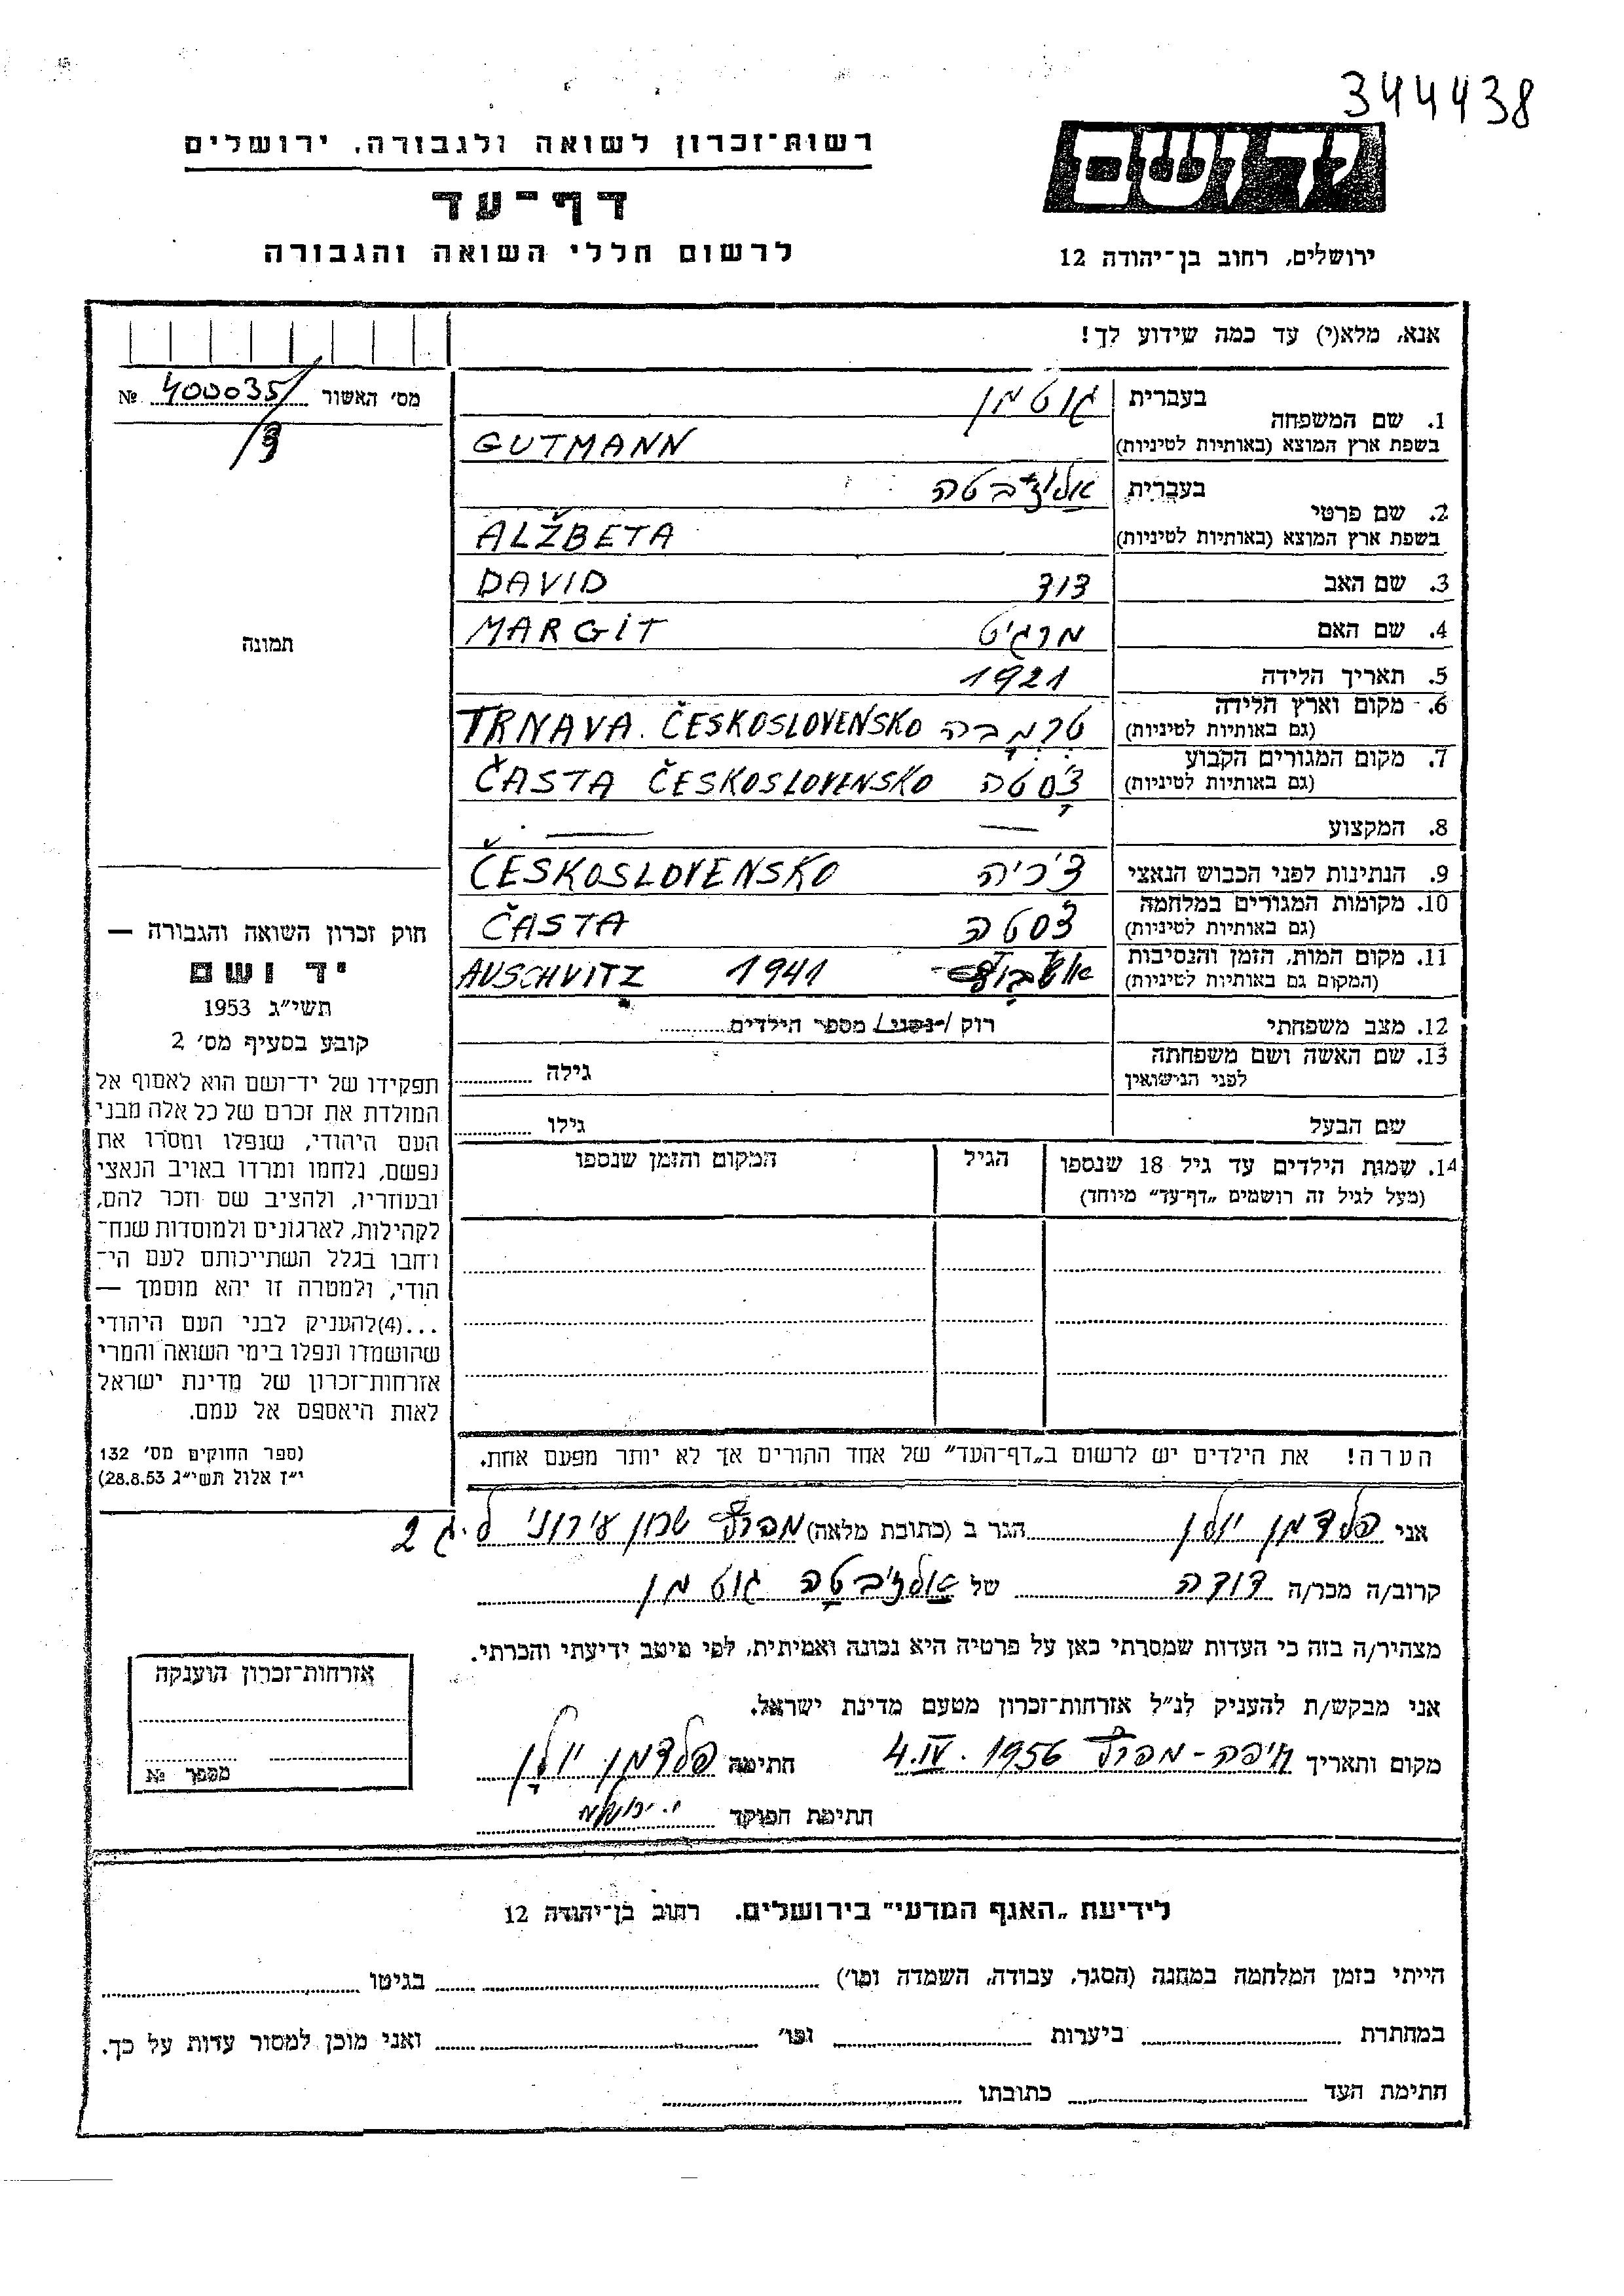 344438
רשות-זכרון לשואה ולגבורה, ירושלים
יד ושם
דף-עד
לרשום חללי השואה והגבורה
ירושלים, רחוב בן-יהודה 12
אנא, מלא(י) עד כמה שידוע לך!
מס' האשור 400035/ №
3/
1. שם המשפחה
בעברית גוטמן
בשפת ארץ המוצא (באותיות לטיניות) GUTMANN
2. שם פרטי
בעברית אלז'בטה
בשפת ארץ המוצא (באותיות לטיניות) ALŽBETA
3. שם האב דוד DAVID
4. שם האם מרגיט MARGIT
תמונה
5. תאריך הלידה 1921
6. מקום וארץ הלידה
(גם באותיות לטיניות) טרנבה TRNAVA. ČESKOSLOVENSKO
7. מקום המגורים הקבוע
(גם באותיות לטיניות) צ'סטה ČASTA ČESKOSLOVENSKO
8. המקצוע — —
9. הנתינות לפני הכבוש הנאצי צ'כיה ČESKOSLOVENSKO
10. מקומות המגורים במלחמה
(גם באותיות לטיניות) צ'סטה ČASTA
11. מקום המות, הזמן והנסיבות
(המקום גם באותיות לטיניות) אושביץ 1941 AUSCHVITZ
12. מצב משפחתי רוק / נשוי / מספר הילדים
13. שם האשה ושם משפחתה
לפני הנישואין גילה
שם הבעל גילו
14. שמות הילדים עד גיל 18 שנספו הגיל המקום והזמן שנספו
(מעל לגיל זה רושמים „דף-עד" מיוחד)
חוק זכרון השואה והגבורה —
יד ושם
תשי"ג 1953
קובע בסעיף מס' 2
תפקידו של יד-ושם הוא לאסוף אל
המולדת את זכרם של כל אלה מבני
העם היהודי, שנפלו ומסרו את
נפשם, נלחמו ומרדו באויב הנאצי
ובעוזריו, ולהציב שם וזכר להם,
לקהילות, לארגונים ולמוסדות שנח-
רבו בגלל השתייכותם לעם הי-
הודי, ולמטרה זו יהא מוסמך —
...(4)להעניק לבני העם היהודי
שהושמדו ונפלו בימי השואה והמרי
אזרחות-זכרון של מדינת ישראל
לאות היאספם אל עמם.
(ספר החוקים מס' 132
י"ז אלול תשי"ג 28.8.53)
הערה! את הילדים יש לרשום ב„דף-העד" של אחד ההורים אך לא יותר מפעם אחת.
אני פלדמן יולן הגר ב (כתובת מלאה) מפרץ שכון עירוני ל.ג 2
קרוב/ה מכר/ה דודה של אלז'בטה גוטמן
מצהיר/ה בזה כי העדות שמסרתי כאן על פרטיה היא נכונה ואמיתית, לפי מיטב ידיעתי והכרתי.
אני מבקש/ת להעניק לנ"ל אזרחות-זכרון מטעם מדינת ישראל.
מקום ותאריך חיפה-מפרץ 4.IV.1956 חתימה פלדמן יולן
חתימת הפוקד
אזרחות-זכרון הוענקה
מספר №
לידיעת „האגף המדעי" בירושלים. רחוב בן-יהודה 12
הייתי בזמן המלחמה במחנה (הסגר, עבודה, השמדה וכו') בגיטו
במחתרת ביערות וכו' ואני מוכן למסור עדות על כך.
חתימת העד כתובתו